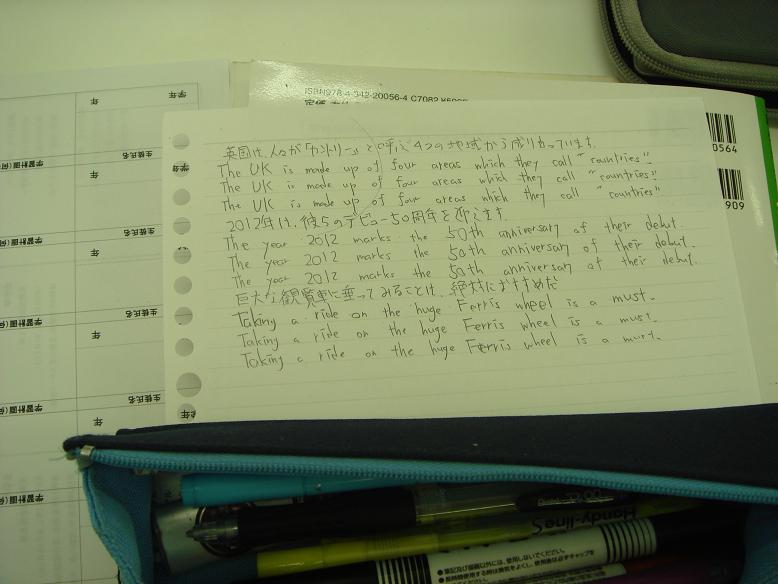 ISBN978-4-342-20056-4 C7082
0564
909
英国は、人々が「カントリー」と呼ぶ4つの地域から成り立っています.
The UK is made up of four areas which they call "countries".
The UK is made up of four areas which they call "countries".
The UK is made up of four areas which they call "countries"
2012年は、彼らのデビュー50周年を印します.
The year 2012 marks the 50th anniversary of their debut.
The year 2012 marks the 50th anniversary of their debut.
The year 2012 marks the 50th anniversary of their debut.
巨大な観覧車に乗ってみることは、絶対におすすめだ
Taking a ride on the huge Ferris wheel is a must.
Taking a ride on the huge Ferris wheel is a must.
Taking a ride on the huge Ferris wheel is a must.
学年 年
生徒氏名
学年
年
生徒氏名
年
生徒氏名
年
生徒氏名
年
学習計画
学習計画
学習計画
Handy-line S
●筆記及び描画以外には、使用しないでください。